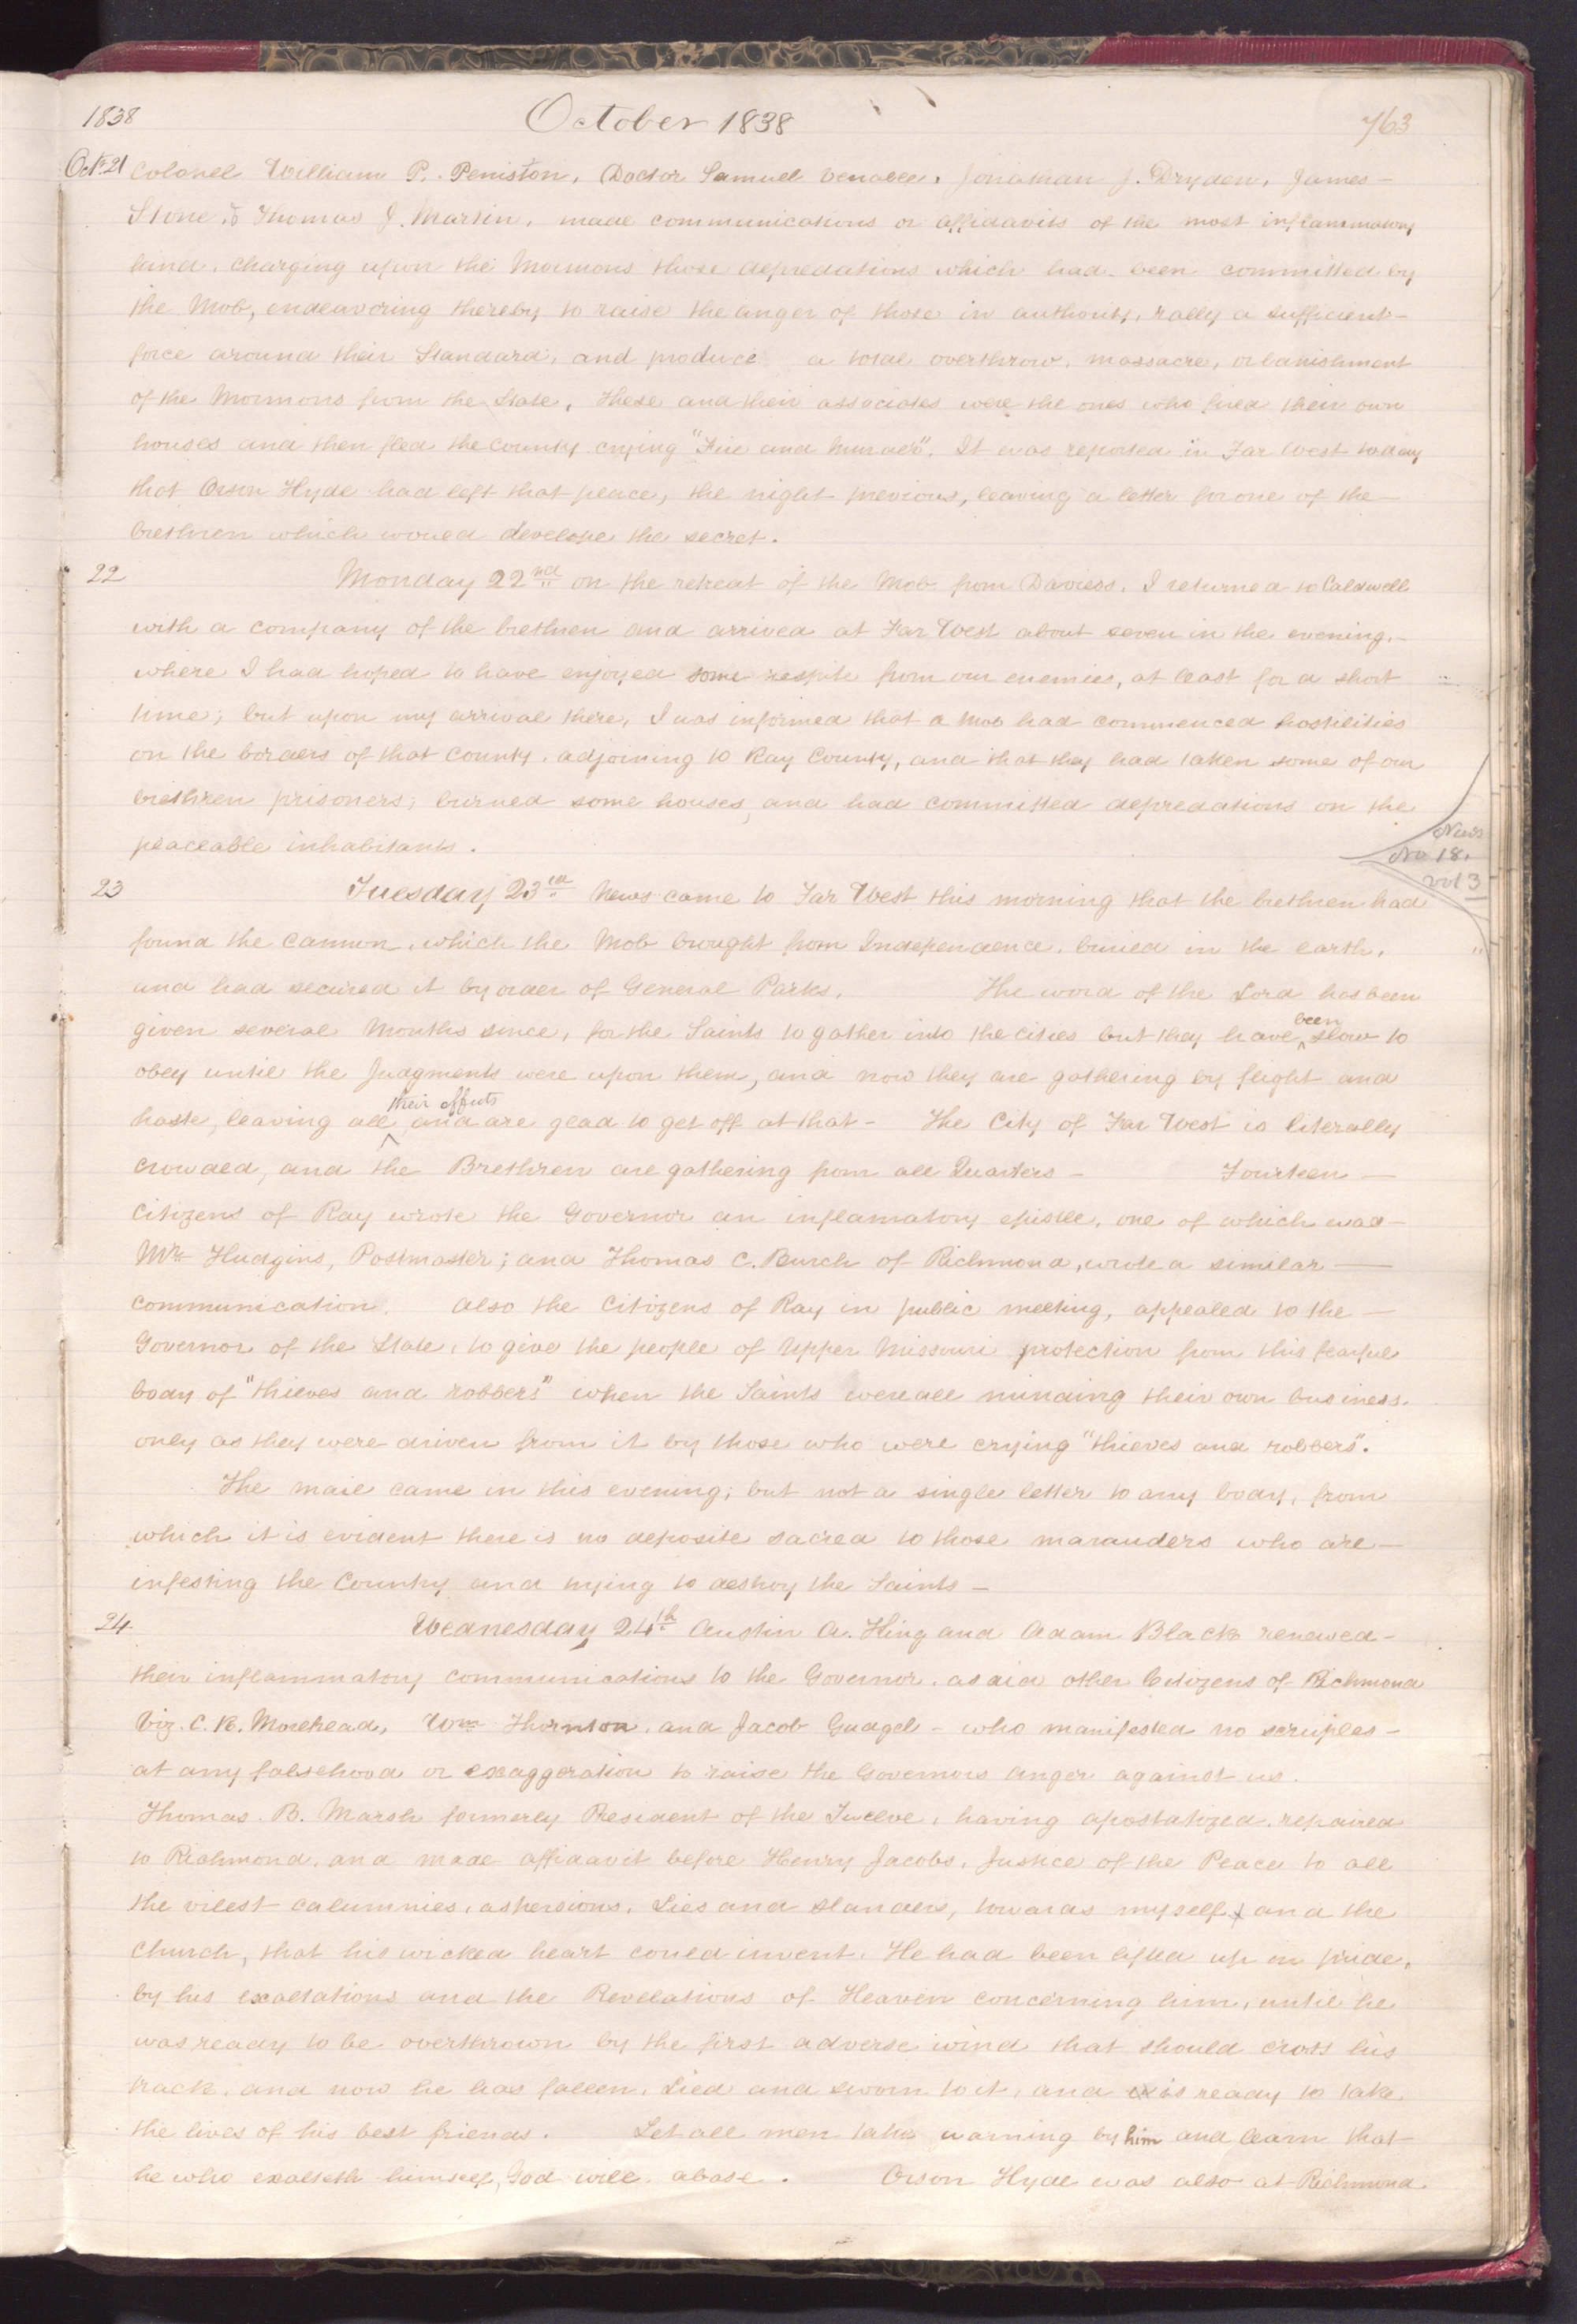 1838 October 1838 763
Oct. 21 Colonel William P. Peniston, Doctor Samuel Venable, Jonathan J. Dryden, James—
Stone, & Thomas J. Martin, made communications or affidavits of the most inflammatory
kind, charging upon the Mormons those depredations which had been committed by
the Mob, endeavoring thereby to raise the anger of those in authority, rally a sufficient—
force around their Standard, and produce a total overthrow, massacre, or banishment
of the Mormons from the State, These and their associates were the ones who fired their own
houses and then fled the County crying "Fire and Murder". It was reported in Far West today
that Orson Hyde had left that place, the night previous, leaving a letter for one of the—
brethren which would develope the secret.
22 Monday 22nd on the retreat of the Mob from Daviess, I returned to Caldwell
with a company of the brethren and arrived at Far West about seven in the evening,—
where I had hoped to have enjoyed some respite from our enemies, at least for a short
time; but upon my arrival there, I was informed that a Mob had commenced hostilities
on the borders of that County, adjoining to Ray County, and that they had taken some of our
brethren prisoners, burned some houses, and had committed depredations on the
peaceable inhabitants.
News
No 18.
vol 3
23 Tuesday 23rd News came to Far West this morning that the brethren had
found the cannon, which the Mob brought from Independence, buried in the earth,
and had secured it by order of General Parks. The word of the Lord has been
given several Months since, for the Saints to gather into the cities but they have been slow to
obey until the Judgments were upon them, and now they are gathering by flight and
haste, leaving all their effects and are glad to get off at that— The City of Far West is literally
crowded, and the Brethren are gathering from all Quarters— Fourteen—
Citizens of Ray wrote the Governor an inflamatory epistle, one of which was—
Mr. Hudgins, Postmaster; and Thomas C. Burch of Richmond, wrote a similar—
communication. Also the Citizens of Ray in public meeting, appealed to the—
Governor of the State, to give the people of Upper Missouri protection from this fearful
body of "thieves and robbers" when the Saints were all minding their own business,
only as they were driven from it by those who were crying "thieves and robbers".
The mail came in this evening; but not a single letter to any body, from
which it is evident there is no deposite sacred to those marauders who are—
infesting the Country and trying to destroy the Saints—
24 Wednesday 24th Austin A. King and Adam Black renewed—
their inflammatory communications to the Governor, as did other Citizens of Richmond
Viz. C. R. Morehead, Wm Thornton, and Jacob Gudgel— who manifested no scruples—
at any falsehood or exaggeration to raise the Governors anger against us.
Thomas B. Marsh formerly President of the Twelve, having apostatized, repaired
to Richmond, and made affidavit before Henry Jacobs, Justice of the Peace to all
the vilest calumnies, aspersions, Lies and slanders, towards myself, and the
Church, that his wicked heart could invent. He had been lifted up in pride,
by his exaltations and the Revelations of Heaven concerning him, until he
was ready to be overthrown by the first adverse wind that should cross his
track, and now he has fallen, Lied and sworn to it, and is ready to take
the lives of his best friends. Let all men take warning by him and learn that
he who exalteth himself, God will abase. Orson Hyde was also at Richmond.